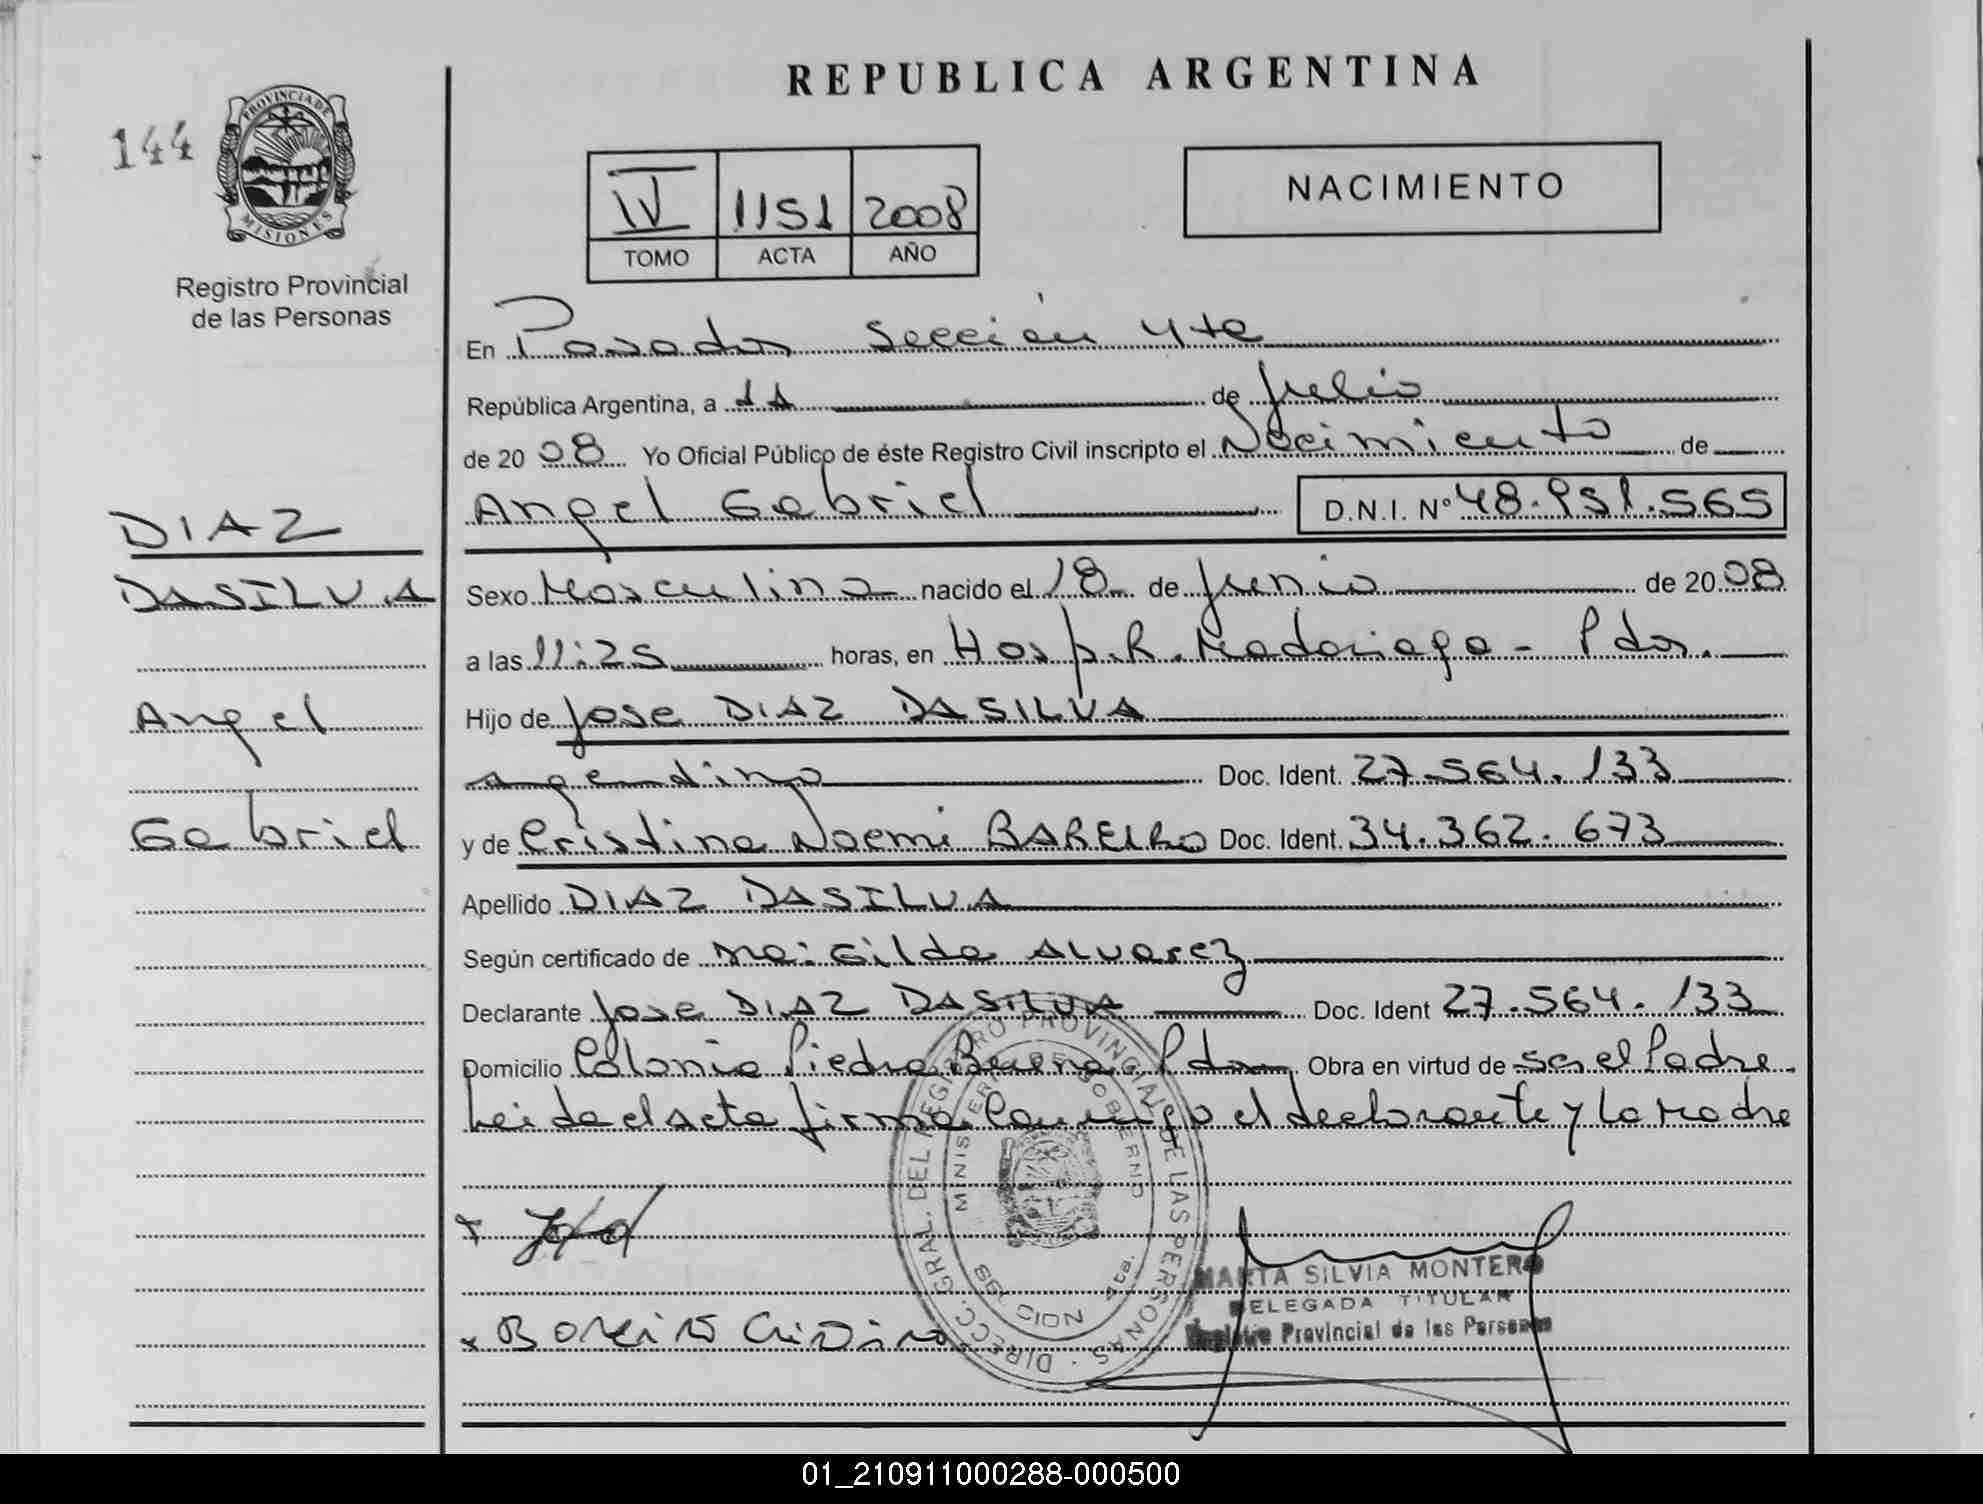 REPUBLICA ARGENTINA
144
PROVINCIA DE
MISIONES
Registro Provincial
de las Personas
IV 1151 2008
TOMO ACTA AÑO
NACIMIENTO
En Posadas Sección 4ta
República Argentina, a 11 de Julio
de 2008 Yo Oficial Público de éste Registro Civil inscripto el Nacimiento de
Angel Gabriel D.N.I. Nº 48.951.565
DIAZ
DASILVA
Angel
Gabriel
Sexo Masculino nacido el 18 de Junio de 2008
a las 11:25 horas, en Hosp. R. Madariaga - Pdas.
Hijo de Jose DIAZ DASILVA
argentino Doc. Ident. 27.564.133
y de Cristina Noemi BAREIRO Doc. Ident. 34.362.673
Apellido DIAZ DASILVA
Según certificado de Ma: Gilda Alvarez
Declarante Jose DIAZ DASILVA Doc. Ident 27.564.133
Domicilio Colonia Piedra Buena Pdas Obra en virtud de ser el Padre.
Leida el acta firma Conmigo el declarante y la Madre
DIRECC. GRAL. DEL REGISTRO PROVINCIAL DE LAS PERSONAS
MINISTERIO DE GOBERNO
SECCION 4ta.
x
x Boreiro Cristina
MARTA SILVIA MONTERO
DELEGADA TITULAR
Registro Provincial de las Personas
01_210911000288-000500